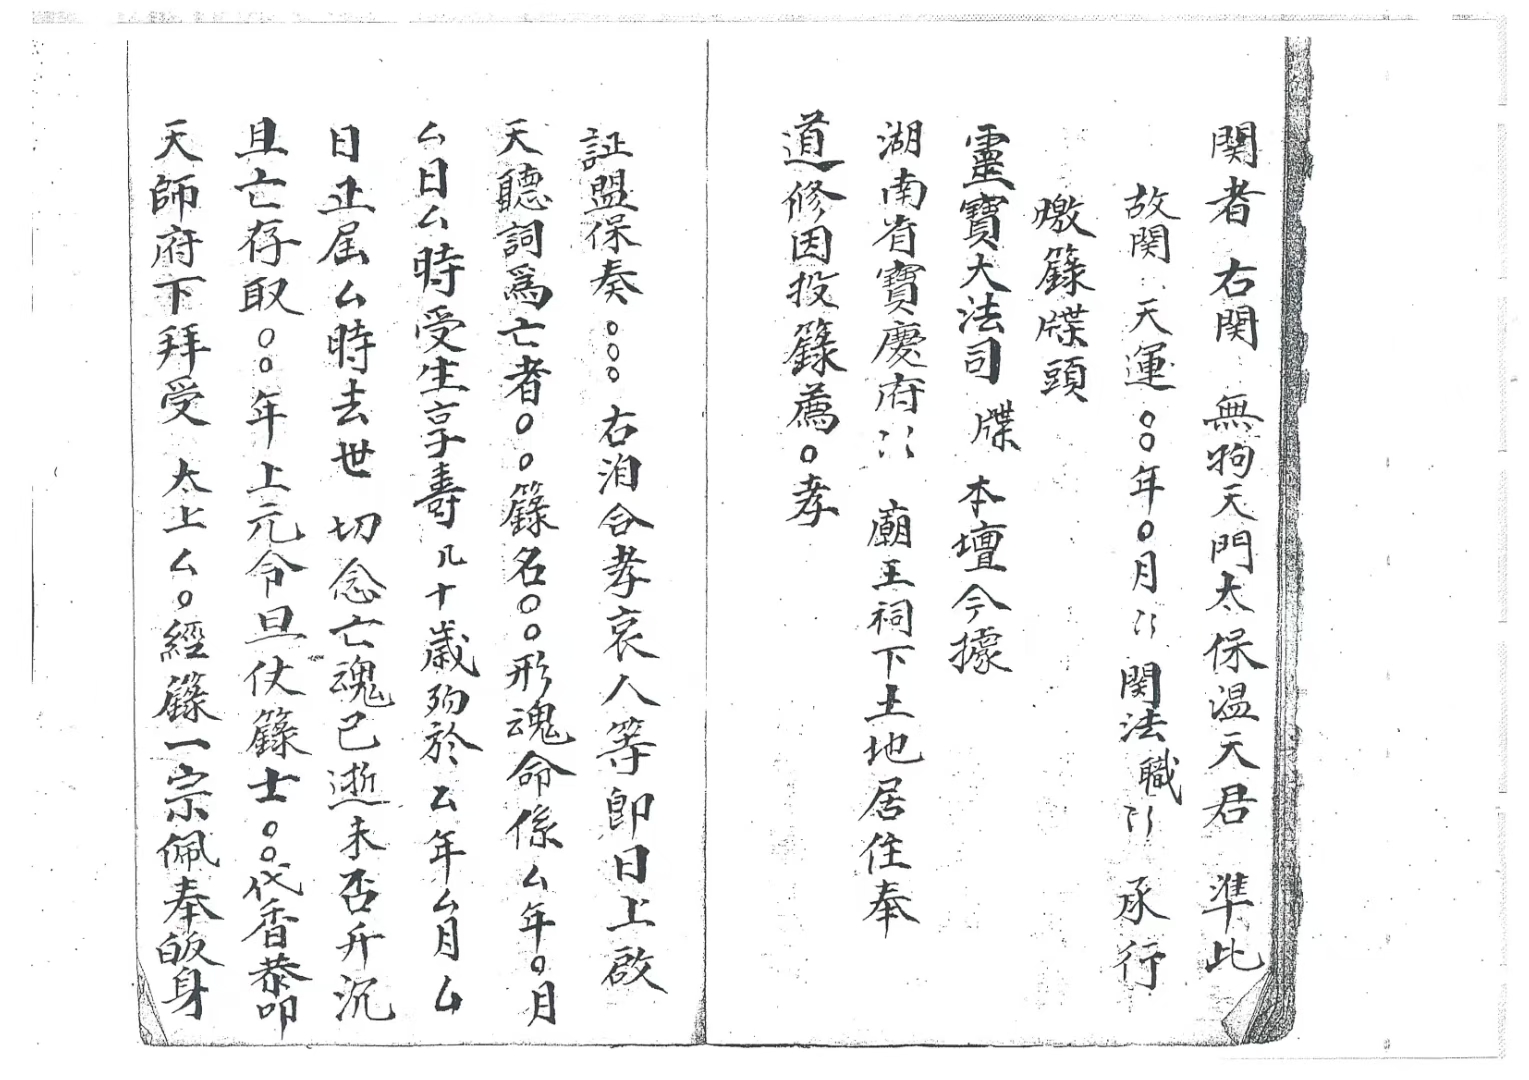 関者 右関 無拘天門太保温天君 準此
故関 天運○○年○月〻関法職〻 承行
繳籙牒頭
靈寶大法司 牒 本壇今據
湖南省寶慶府〻 廟王祠下土地居住奉
道修因投籙薦○孝
証盟保奏○○○右洎合孝哀人等即日上啟
天聽詞爲亡者○○籙名○○形魂命係厶年○月
厶日厶時受生享壽几十歲歿於厶年厶月厶
日正屆厶時去世 切念亡魂已逝未否升沉
且亡存取○○年上元令旦仗籙士○○代香恭叩
天師府下拜受 太上厶○經籙一宗佩奉皈身